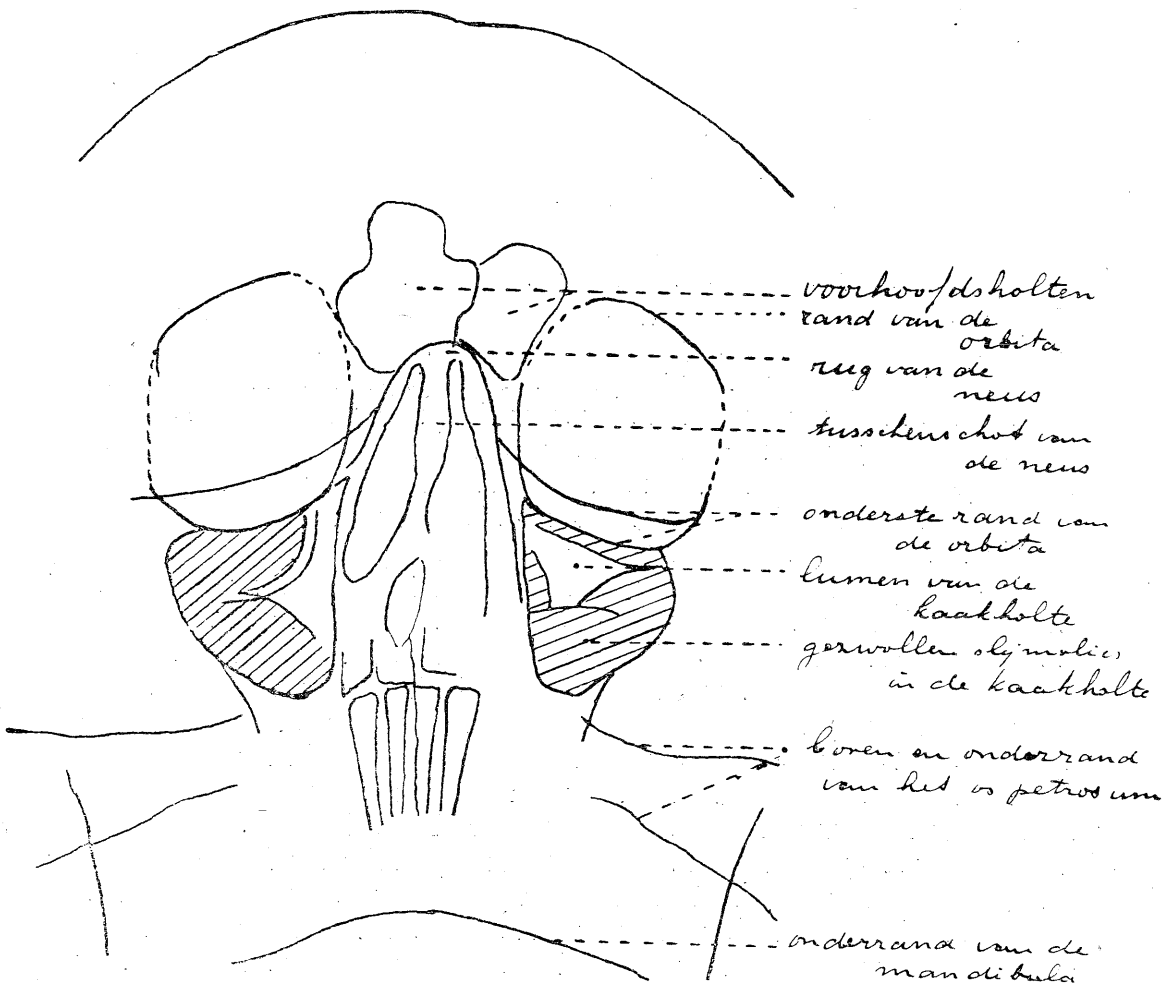 voorhoofdsholten
rand van de
orbita
rug van de
neus
tusschenschot van
de neus
onderste rand van
de orbita
lumen van de
kaakholte
gezwollen slijmvlies
in de kaakholte
boven en onderrand
van het os petrosum
onderrand van de
mandibula